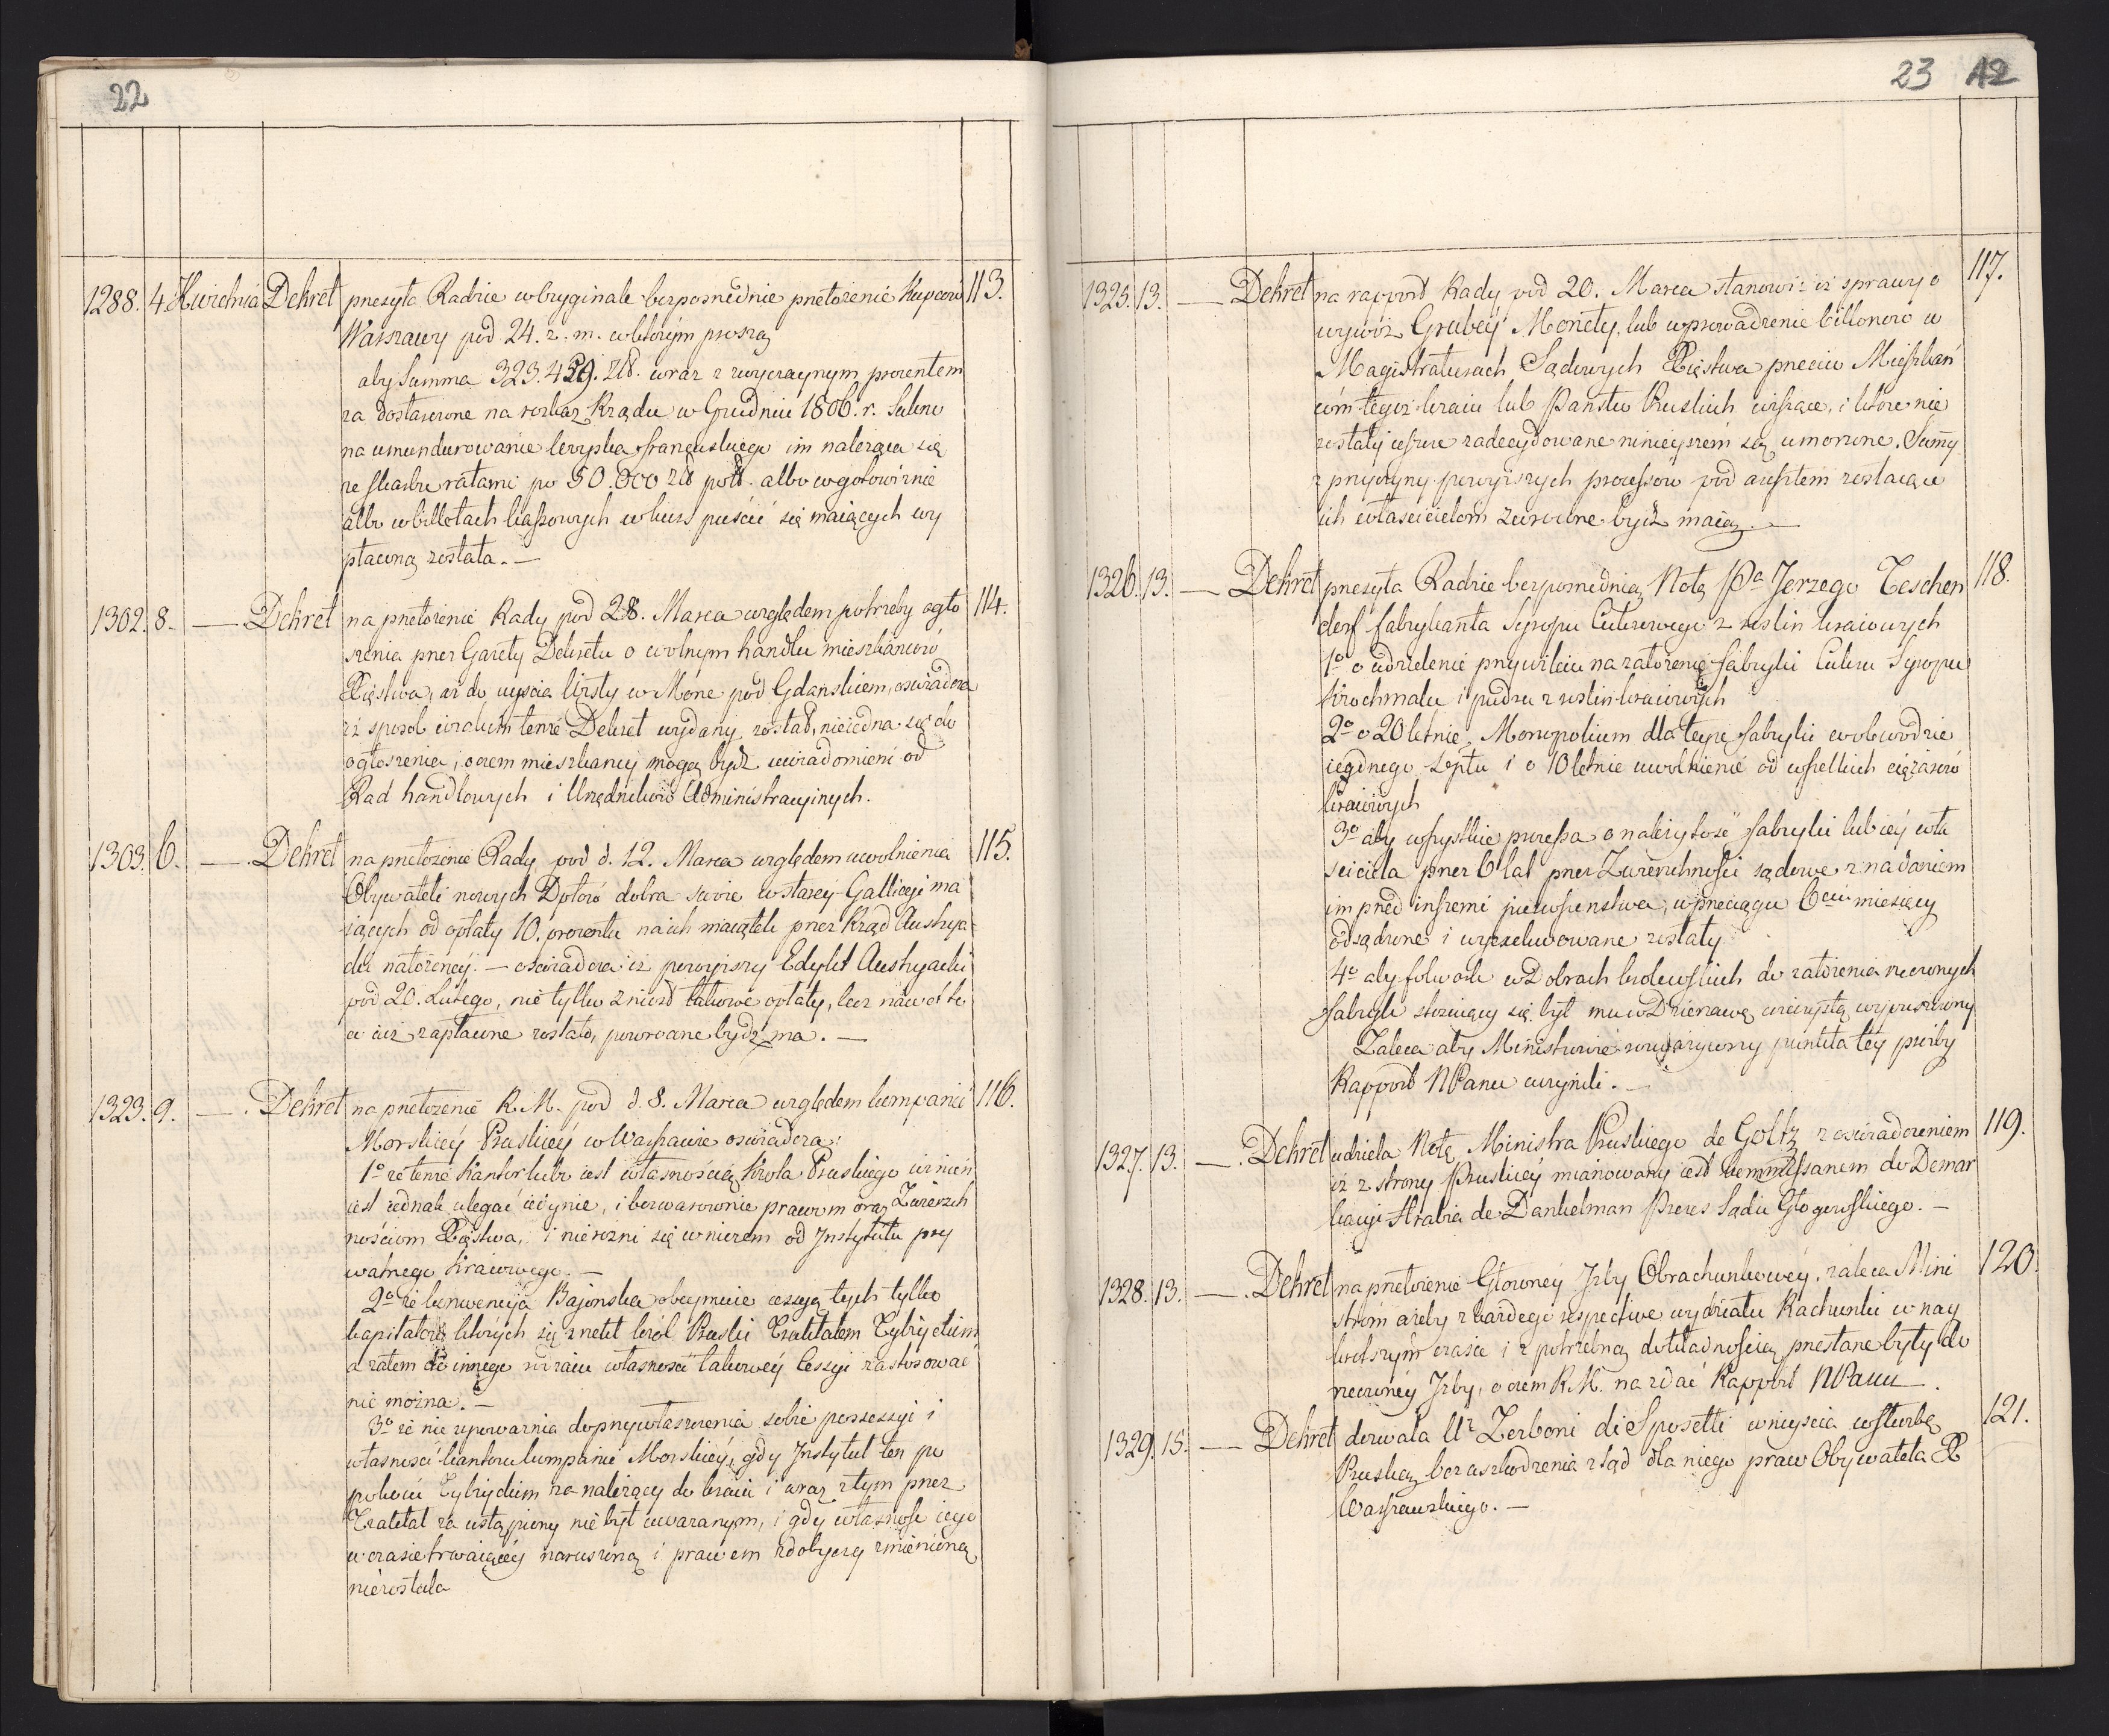 22
1288. 4. Kwietnia Dekret przesyła Radzie w oryginale bezpośrednie przełożenie Kupców 113.
Warszawy pod 24. z. m. w którym proszą
aby Summa 323.459. złł. wraz z zwyczaynym procentem
za dostawione na rozkaz Rządu w Grudniu 1806. r. Sukno
na umundurowanie woyska francuskiego im należąca się
ze skarbu ratami po 50.000 zł pol. albo w gotowiźnie
albo w billetach kassowych w kurs puścić się maiących wy
płaconą została. —
1302. 8. — Dekret na przełożenie Rady pod 28. Marca względem potrzeby ogło 114.
szenia przez Gazety Dekretu o wolnym handlu mieszkańców
Xięstwa, aż do uyścia Wisły w Morze pod Gdańskiem, oświadcza
iż sposób w iakim tenże Dekret wydany został, nie iedna się do
ogłoszenia, o czem mieszkańcy mogą bydź uwiadomieni od
Rad handlowych i Urzędników Administracyinych.
1303. 6. — Dekret na przełożenie Rady pod d. 12. Marca względem uwolnienia 115.
Obywateli nowych Dptów dobra swoie w starey Gallicyi ma
iących od opłaty 10. procentu na ich maiątek przez Rząd Austrya
cki nałożoney. — oświadcza iż powyższy Edykt Austryacki
pod 20. Lutego, nie tylko zniosł takowe opłaty, lecz nawet to
co iuż zapłacone zostało, powrócone bydź ma. —
1323. 9. — Dekret na przełożenie R. M. pod d. 8. Marca względem kompanii 116.
Morskiey Pruskiey w Warszawie oświadcza:
1o że tenże Kantor lubo iest własnością Króla Pruskiego winien
iest iednak ulegać iedynie, i bezwarownie prawom oraz Zwierzch
nościom Xięstwa, i nierożni się w niczem od Instytutu pry
watnego Kraiowego. —
2o że konwencyia Bajonska obeymuie cessyą tych tylko
kapitałów których się zrzekł król Pruski Traktatem Tylżyckim
a zatem do innego rodzaiu własności takowey Cessyi zastosować
nie można. —
3o że nie upoważnia do przywłaszczenia sobie possessyi i
własności kantoru kompanii Morskiey, gdy Instytut ten po
pokoiu Tylżyckim za należący do kraiu i wraz z tym przez
Traktat za ustąpiony nie był uważanym, i gdy własność iego
w czasie trwaiącey naruszoną i prawem zdobyczy zmienioną
niezostała
23 12
1325. 13. — Dekret na rapport Rady pod 20. Marca stanowi iż sprawy o 117.
wywóz Grubey Monety, lub wprowadzenie billonów w
Magistraturach Sądowych Xięstwa przeciw Mieszkań
com tegoż kraiu lub Państw Pruskich wiszące, i które nie
zostały ieszcze zadecydowane ninieyszem są umorzone. Sum̄y
z przyczyny powyższych processów pod aresztem zostaiące
ich właścicielom zwrócone bydź maią. —
1326. 13. — Dekret przesyła Radzie bezpośrednią Notę Pa Jerzego Teschen 118.
dorf fabrykanta Syropu Cukrowego z roslin kraiowych
1o o udzielenie przywileiu na założenie fabryki Cukru Syropu
Krochmalu i pudru z roslin kraiowych
2o o 20 letnie Monopolium dla teyże fabryki w obwodzie
iednego Dptu i o 10 letnie uwolnienie od wszelkich ciężarów
kraiowych
3o aby wszystkie processa o należytość fabryki lub iey wła
ściciela przez 6 lat przez Zwierzchności sądowe z nadaniem
im przed inszemi pierwszeństwa, w przeciągu 6ciu miesięcy
odsądzone i wyexekwowane zostały
4o aby folwark w Dobrach krolewskich do założenia rzeczonych
fabryk stosuiący się był mu w Dzierzawę wieczystą wypuszczony
Zaleca aby Ministrowie rozważywszy punkta tey prośby
Rapport NPanu uczynili. —
1327. 13. — Dekret udziela Notę Ministra Pruskiego de Goltz z oświadczeniem 119.
iż z strony Pruskiey mianowany iest kommissarzem do Demar
kacyi Hrabia de Dankelman Prezes Sądu Głogowskiego. —
1328. 13. — Dekret na przełożenie Głowney Izby Obrachunkowey, zaleca Mini 120.
strom ażeby z każdego respective wydziału Rachunki w nay
krotszym czasie i z potrzebną dokładnością przesłane były do
rzeczoney Izby, o czem R. M. ma zdać Rapport NPanu
1329. 15. — Dekret dozwala Ur Zerboni di Sposetti wniyscia w służbę 121.
Pruską bez uszkodzenia ztąd dla niego praw Obywatela X
Warszawskiego. —